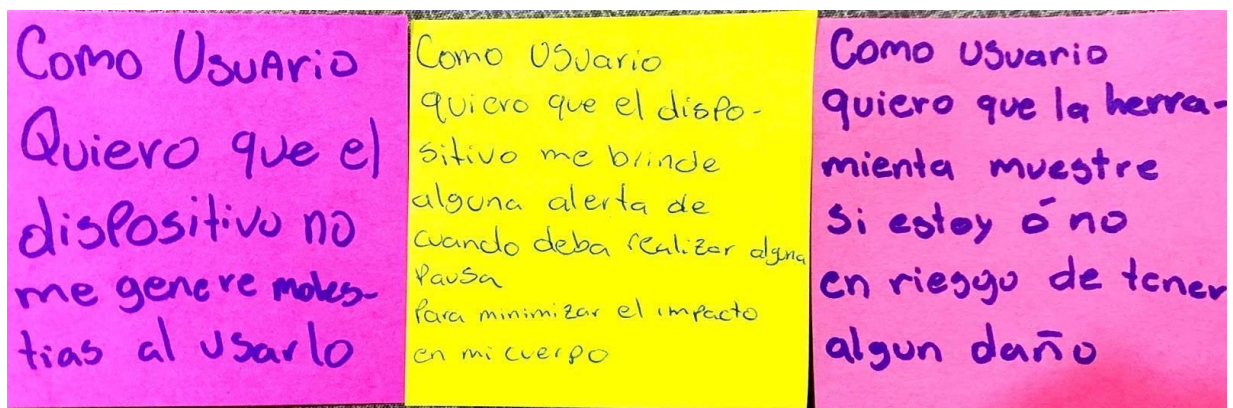 Como Usuario
Quiero que el
dispositivo no
me genere moles-
tias al usarlo
Como Usuario
quiero que el dispo-
sitivo me brinde
alguna alerta de
cuando deba realizar alguna
Pausa
Para minimizar el impacto
en mi cuerpo
Como Usuario
quiero que la herra-
mienta muestre
si estoy ó no
en riesgo de tener
algun daño